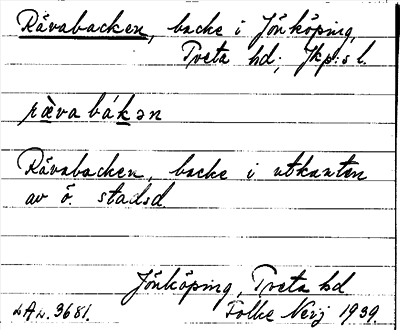 Rävabacken, backe i Jönköping,
Tveta hd; Jkp:s l.
rä̀va bákən
Rävabacken, backe i utkanten
av ö. stadsd.
Jönköping, Tveta hd
LAL. 3681. Folke Neij 1939